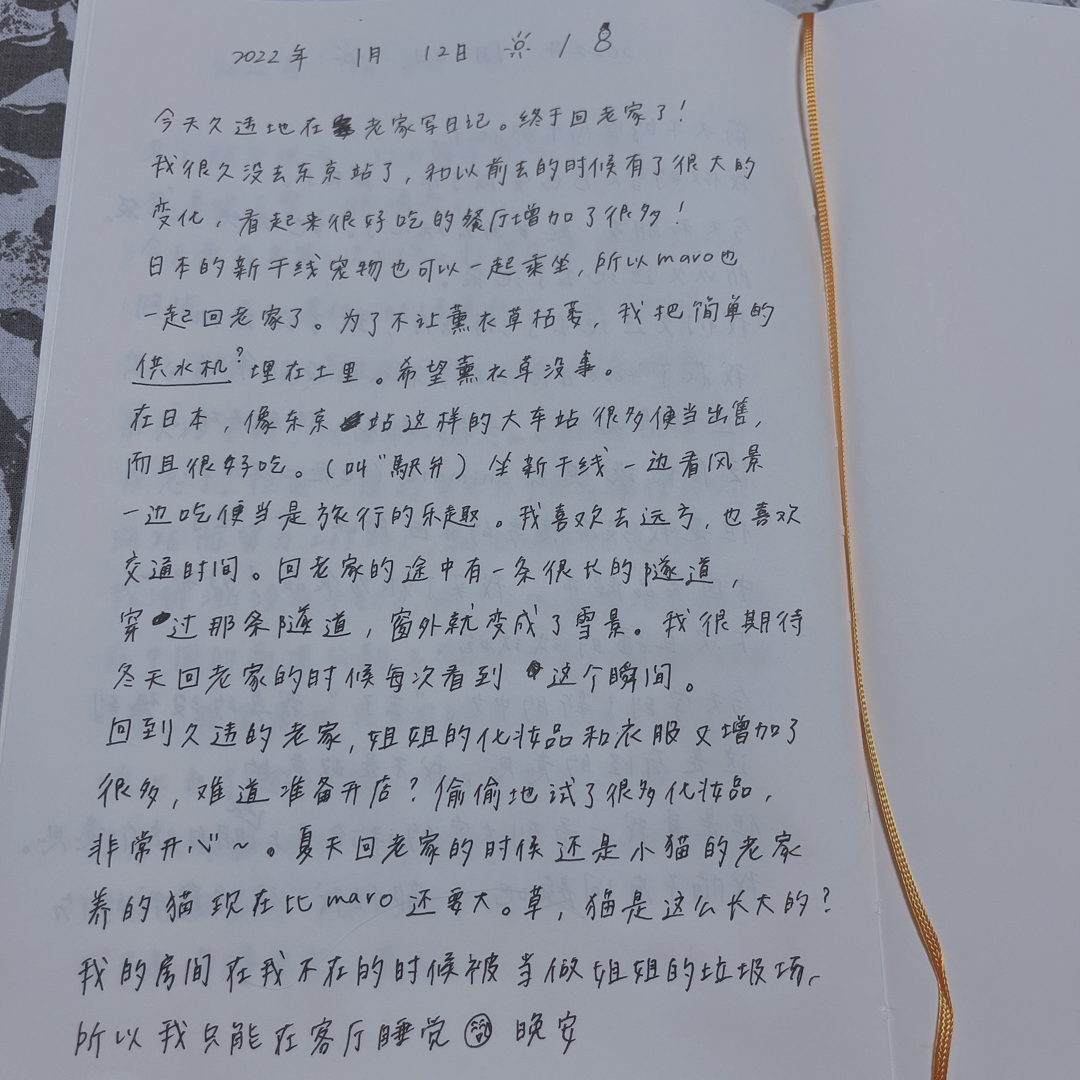 2022年 1月 12日 ☼ / 8
今天久违地在老家写日记。终于回老家了！
我很久没去东京站了，和以前去的时候有了很大的
变化，看起来很好吃的餐厅增加了很多！
日本的新干线宠物也可以一起乘坐，所以maro也
一起回老家了。为了不让薰衣草枯萎，我把简单的
供水机？埋在土里。希望薰衣草没事。
在日本，像东京站这样的大车站很多便当出售，
而且很好吃。（叫“駅弁）坐新干线一边看风景
一边吃便当是旅行的乐趣。我喜欢去远方，也喜欢
交通时间。回老家的途中有一条很长的隧道，
穿过那条隧道，窗外就变成了雪景。我很期待
冬天回老家的时候每次看到这个瞬间。
回到久违的老家，姐姐的化妆品和衣服又增加了
很多，难道准备开店？偷偷地试了很多化妆品，
非常开心～。夏天回老家的时候还是小猫的老家
养的猫现在比maro还要大。草，猫是这么长大的？
我的房间在我不在的时候被当做姐姐的垃圾场，
所以我只能在客厅睡觉 晚安